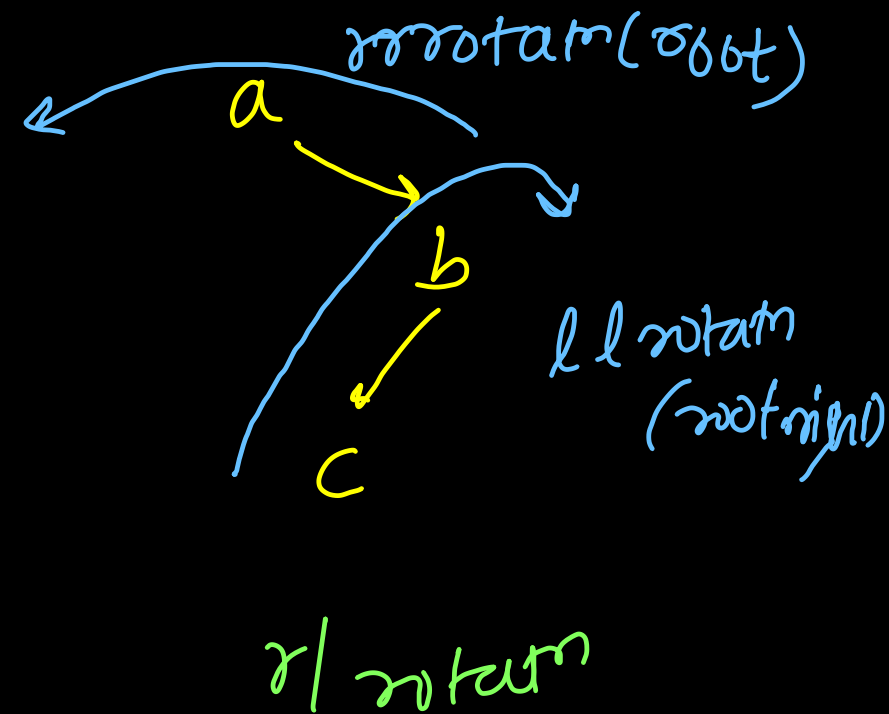 rrrotatn(root)
a
b
ll rotatn
(rootright)
c
rl rotatn